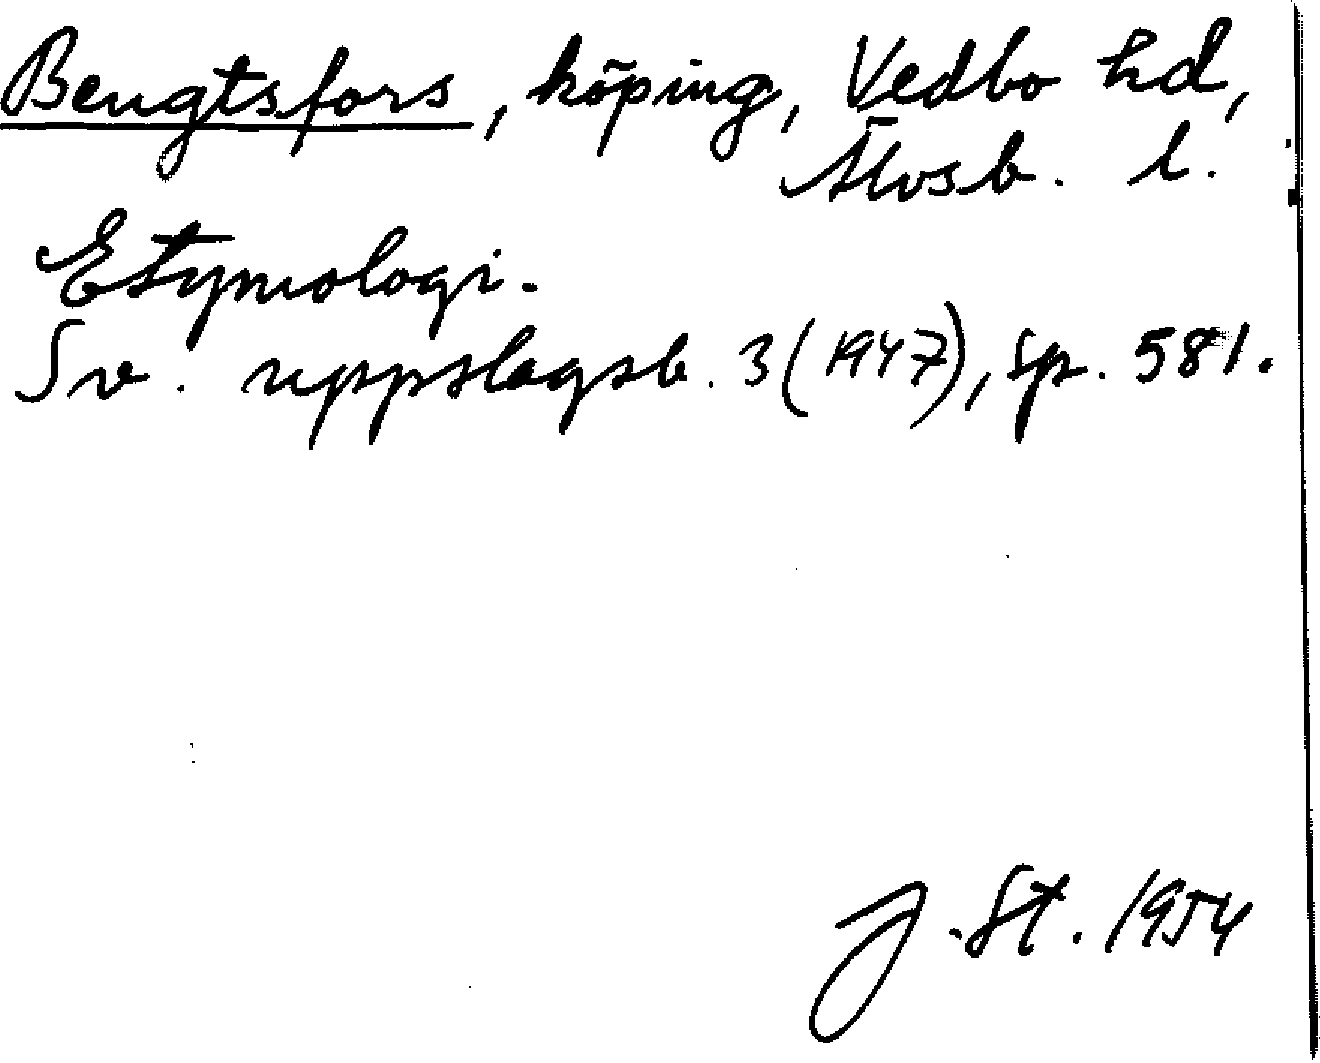 Bengtsfors, köping, Vedbo hd,
Älvsb. l.
Etymologi.
Sv. uppslagsb. 3 (1947), sp. 581.
J. St. 1954